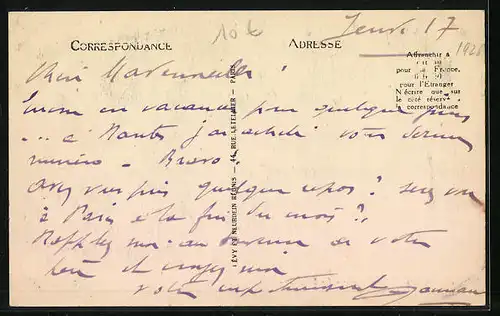 10 €
Jeudi 17
1928
CORRESPONDANCE
ADRESSE
Affranchir à
pour la France,
pour l'Etranger
N'écrire que sur
le côté réservé
la correspondance
Encore en vacances pour quelques jours
... à Nantes j'ai acheté votre dernier
numéro. Bravo.
avez vous pris quelque repos ? serez vous
à Paris à la fin du mois ?
Rappelez moi au souvenir de votre
et croyez moi
votre
LÉVY ET NEURDEIN RÉUNIS — 44, RUE LETELLIER — PARIS